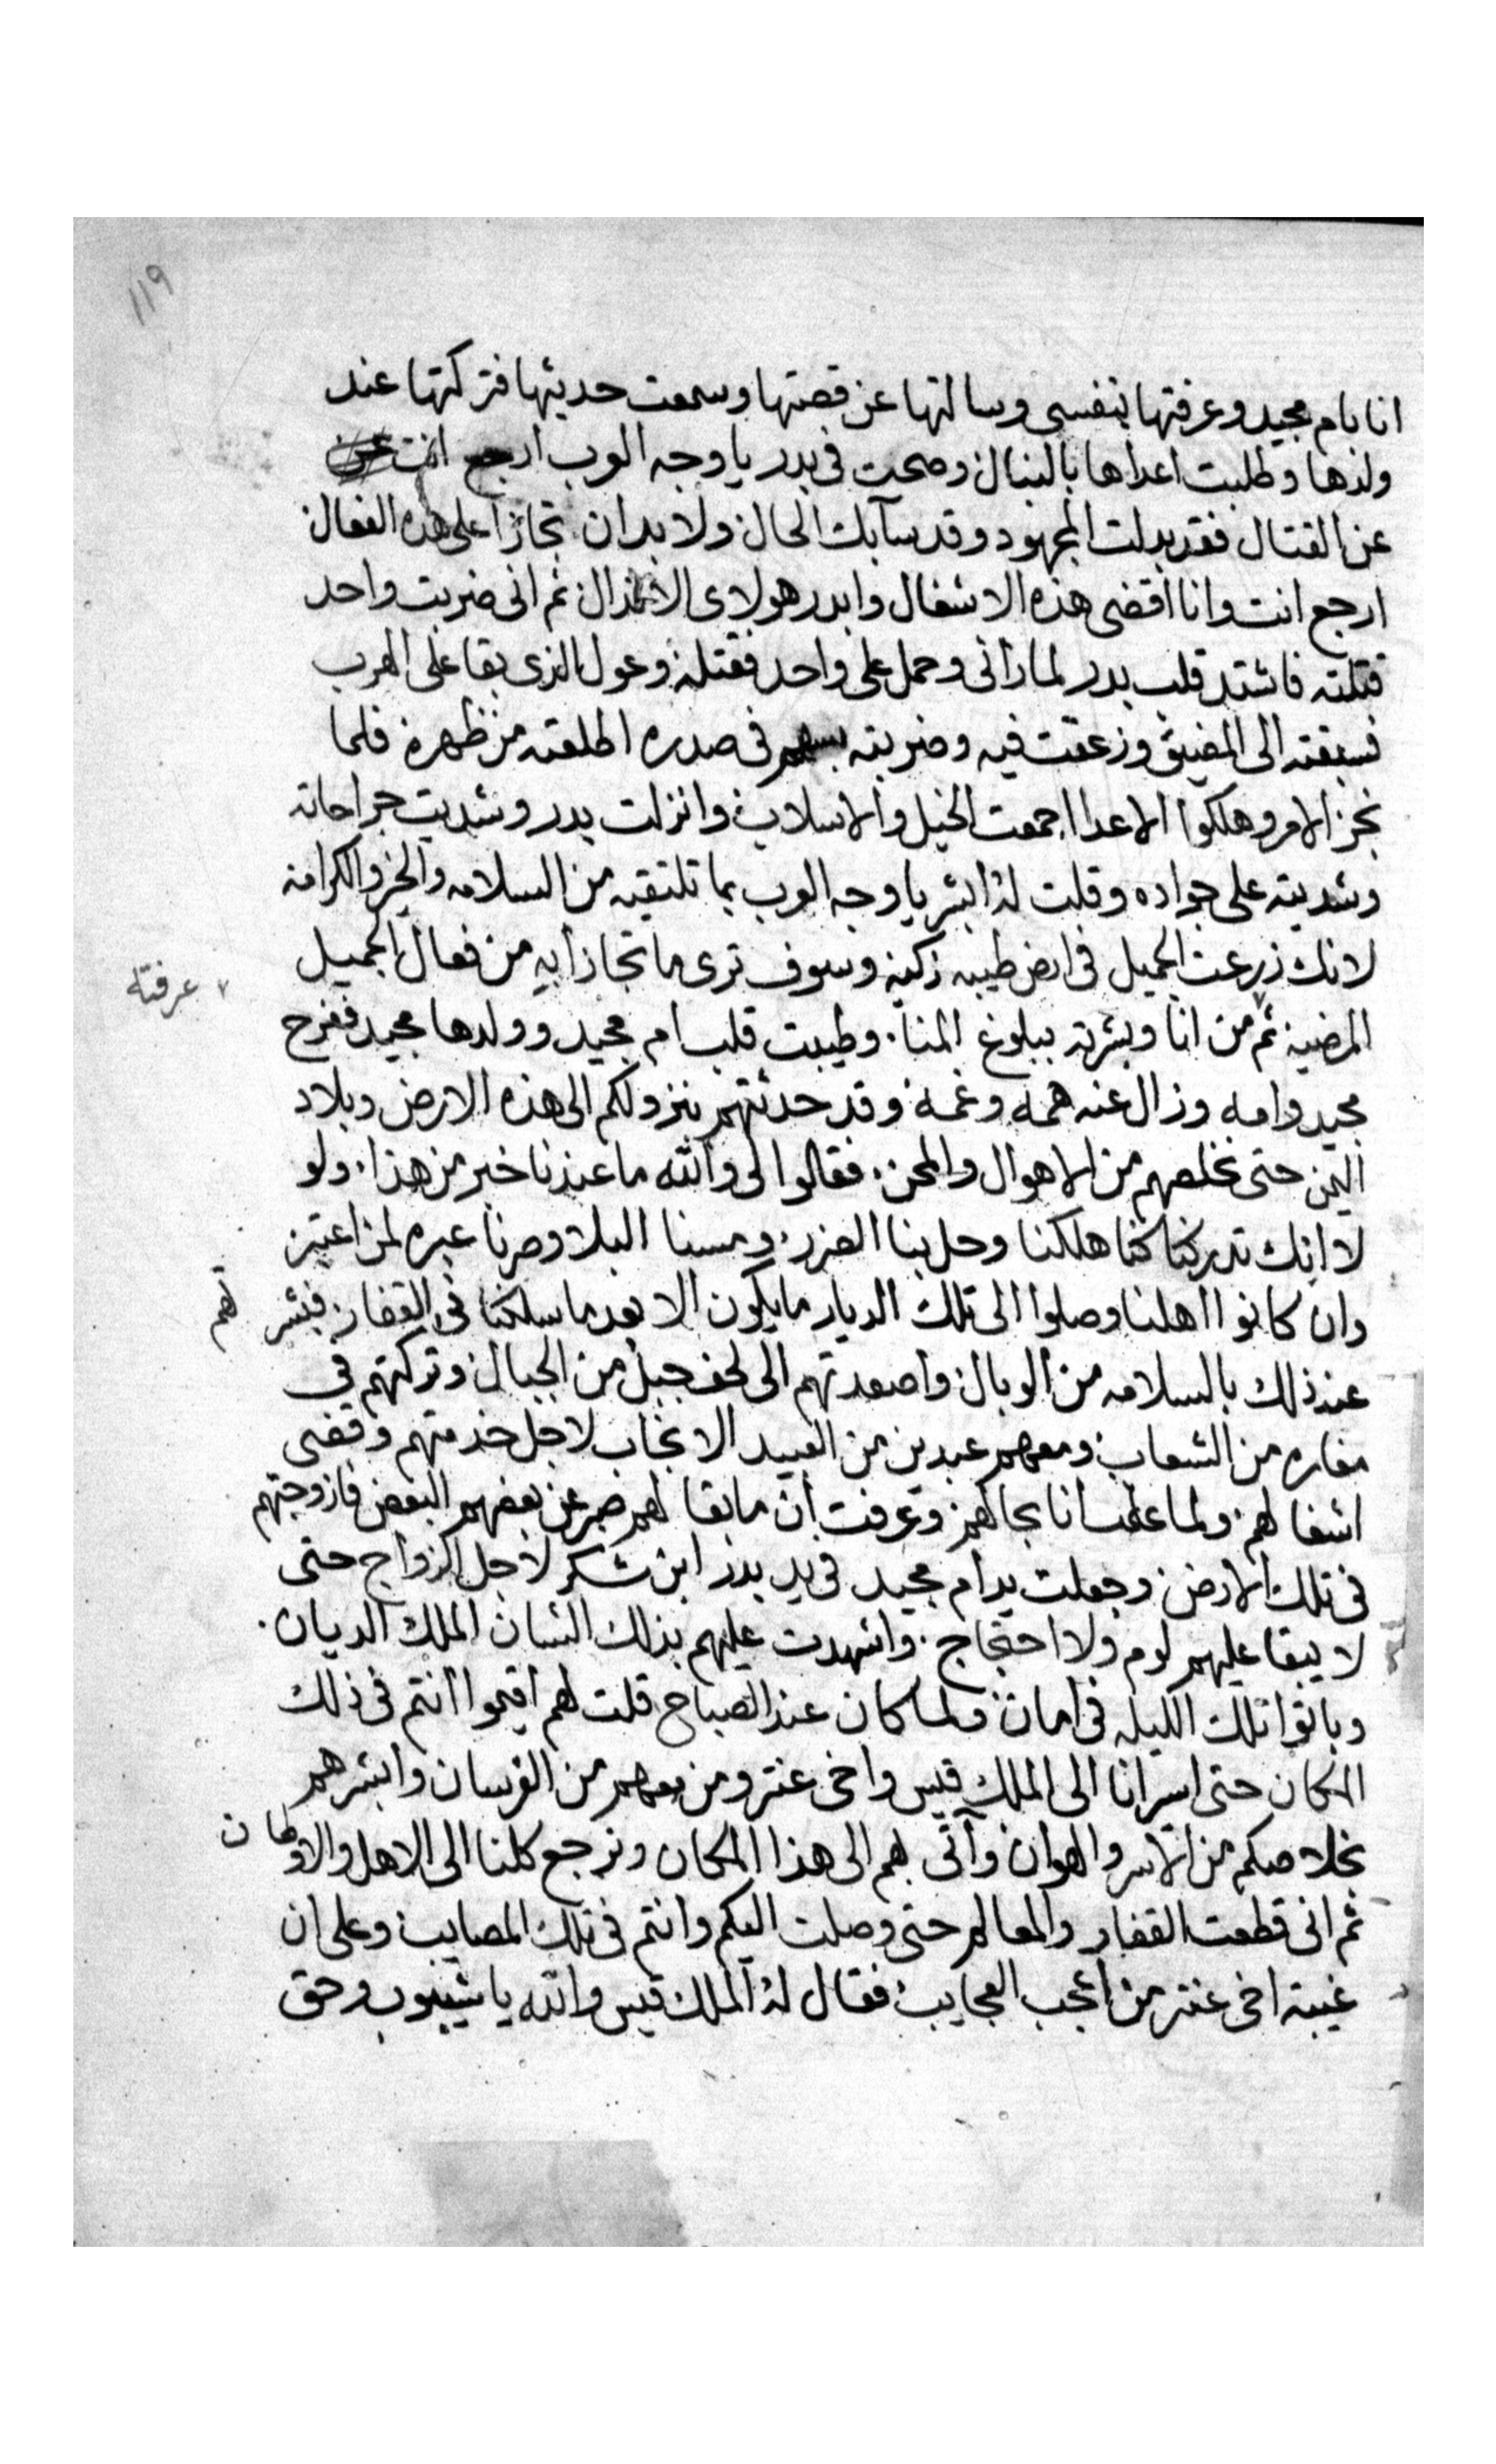 ١١٩
انا بام مجيد وعرفتها بنفسى وسالتها عن قصتها وسمعت حديثها فتركتها عند
ولدها وطلبت اعداها بالنبال وصحت فى بدر يا وجه العرب ارجع انت
عن القتال فقد بدلت المجهود وقد سآبك الحال ولا بد ان تجازا على هذه الفعال
ارجع انت وانا اقضى هذه الاشغال وابدر هولاى الانذال ثم انى ضربت واحد
قتلته فاشتد قلب بدر لما رآنى وحمل على واحد فقتله وعول الذى بقا على الهرب
فسبقته الى المضيق وزعقت فيه وضربته بسهم فى صدره اطلعته من ظهره فلما
نجز الامر وهلكوا الاعدا اجمعت الخيل والاسلاب وانزلت بدر وشديت جراحاته
وشديته على جواده وقلت له ابشر يا وجه العرب بما تلتقيه من السلامه والخير والكرامه
لانك زرعت الجميل فى ارض طيبه زكيه وسوف ترى ما تجازا به من فعال الجميل
المرضيه ثم من انا وبشرته ببلوغ المنا. وطيبت قلب ام مجيد وولدها مجيد ففرح
عرفته
مجيد وامه وزال عنه همه وغمه وقد حدثتهم بنزولكم الى هذه الارض وبلاد
اليمن حتى نخلصهم من الاهوال والمحن. فقالوا لى والله ما عندنا خبر من هذا. ولو
لا انك تدركنا كنا هلكنا وحل بنا الضرر. ومسنا البلا وصرنا عبره لمن اعتبر
وان كانوا اهلنا وصلوا الى تلك الديار ما يكون الا بعد ما سلكنا فى القفار فبشر تهم
عند ذلك بالسلامه من الوبال واصعدتهم الى لحف جبل من الجبال وتركتهم فى
مغاره من الشعاب ومعهم عبدين من العبيد الانجاب لاجل خدمتهم وقضى
اشغالهم ولما علمت انا بحالهم وعرفت ان ما بقا لهم صبر عن بعضهم البعض فازوجتهم
فى تلك الارض وجعلت يد ام مجيد فى يد بدر ابن شكر لاجل الزواج حتى
لا يبقا عليهم لوم ولا احتجاج. واشهدت عليهم بذلك الشان الملك الديان.
وباتوا تلك الليله فى امان ولما كان عند الصباح قلت لهم اقيموا انتم فى ذلك
المكان حتى اسير انا الى الملك قيس واخى عنتر ومن معهم من الفرسان وابشرهم
بخلاصكم من الاسر والهوان وآتى بهم الى هذا المكان ونرجع كلنا الى الاهل والاوطان
ثم انى قطعت القفار والمعالم حتى وصلت اليكم وانتم فى تلك المصايب وعلى ان
غيبة اخى عنتر من اعجب العجايب فقال له الملك قيس والله يا شيبوب وحق